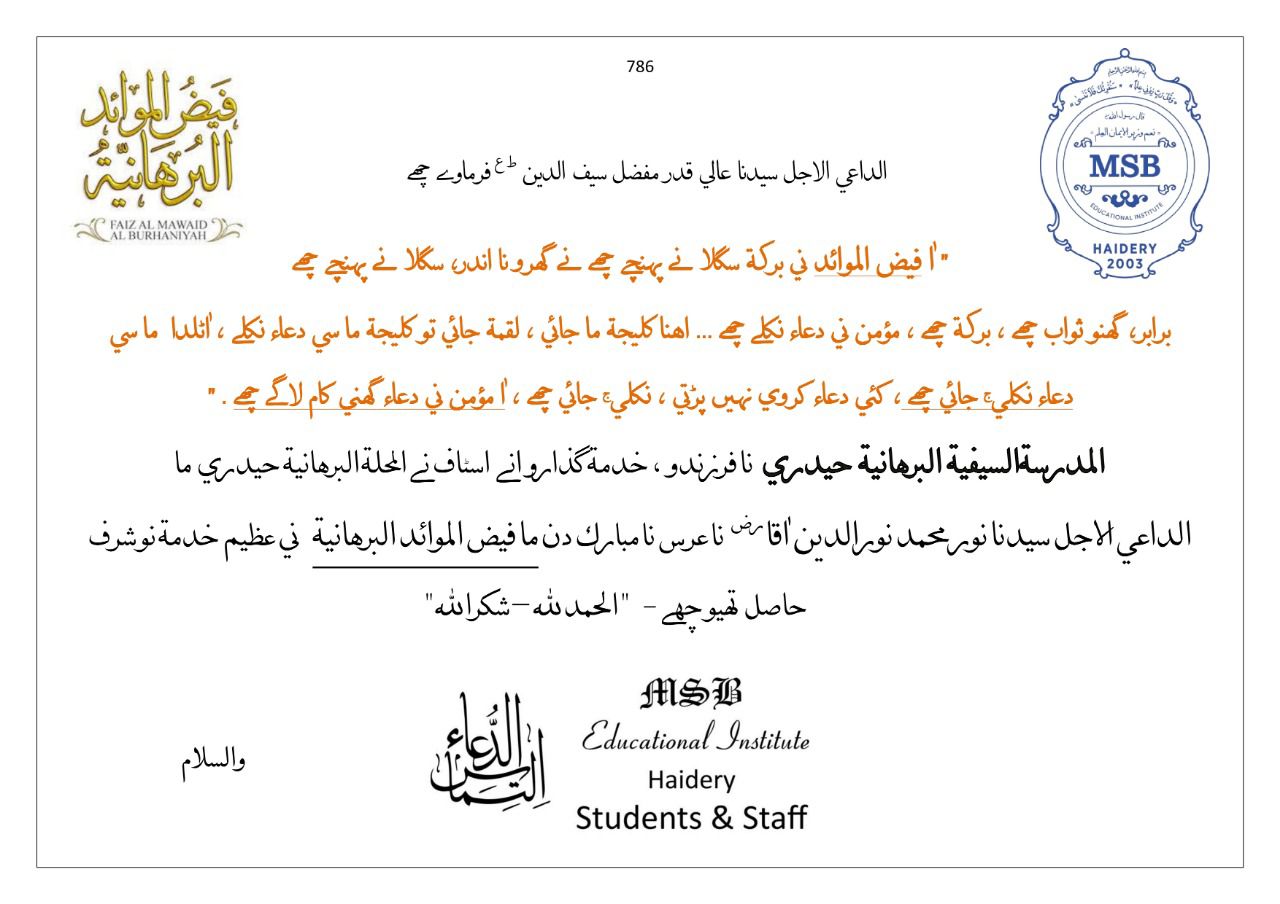 786
فيض الموائد
البرهانية
FAIZ AL MAWAID
AL BURHANIYAH
MSB
EDUCATIONAL INSTITUTE
HAIDERY
2003
الداعي الاجل سيدنا عالي قدر مفضل سيف الدين ط ع فرماوے چھے
"اٰ فيض الموائد ني بركة سگلا نے پهنچے چھے نے گھرو نا اندر، سگلا نے پهنچے چھے
برابر، گھنو ثواب چھے ، بركة چھے ، مؤمن ني دعاء نكلے چھے ... اهنا كليجة ما جائي ، لقمة جائي تو كليجة ما سي دعاء نكلے ، اٰتلدا ما سي
دعاء نكلي ج جائي چھے ، كئي دعاء كروي نهيں پڑتي ، نكلي ج جائي چھے ، اٰ مؤمن ني دعاء گھني كام لاگے چھے . "
المدرسة السيفية البرهانية حيدري نا فرزندو ، خدمة گذارو انے اسٹاف نے المحلة البرهانية حيدري ما
الداعي الاجل سيدنا نور محمد نور الدين اٰقا رض نا عرس نا مبارك دن ما فيض الموائد البرهانية ني عظيم خدمة نو شرف
حاصل تھيو چھے - "الحمد لله – شكرا لله"
التماس الدعاء
MSB
Educational Institute
Haidery
Students & Staff
والسلام